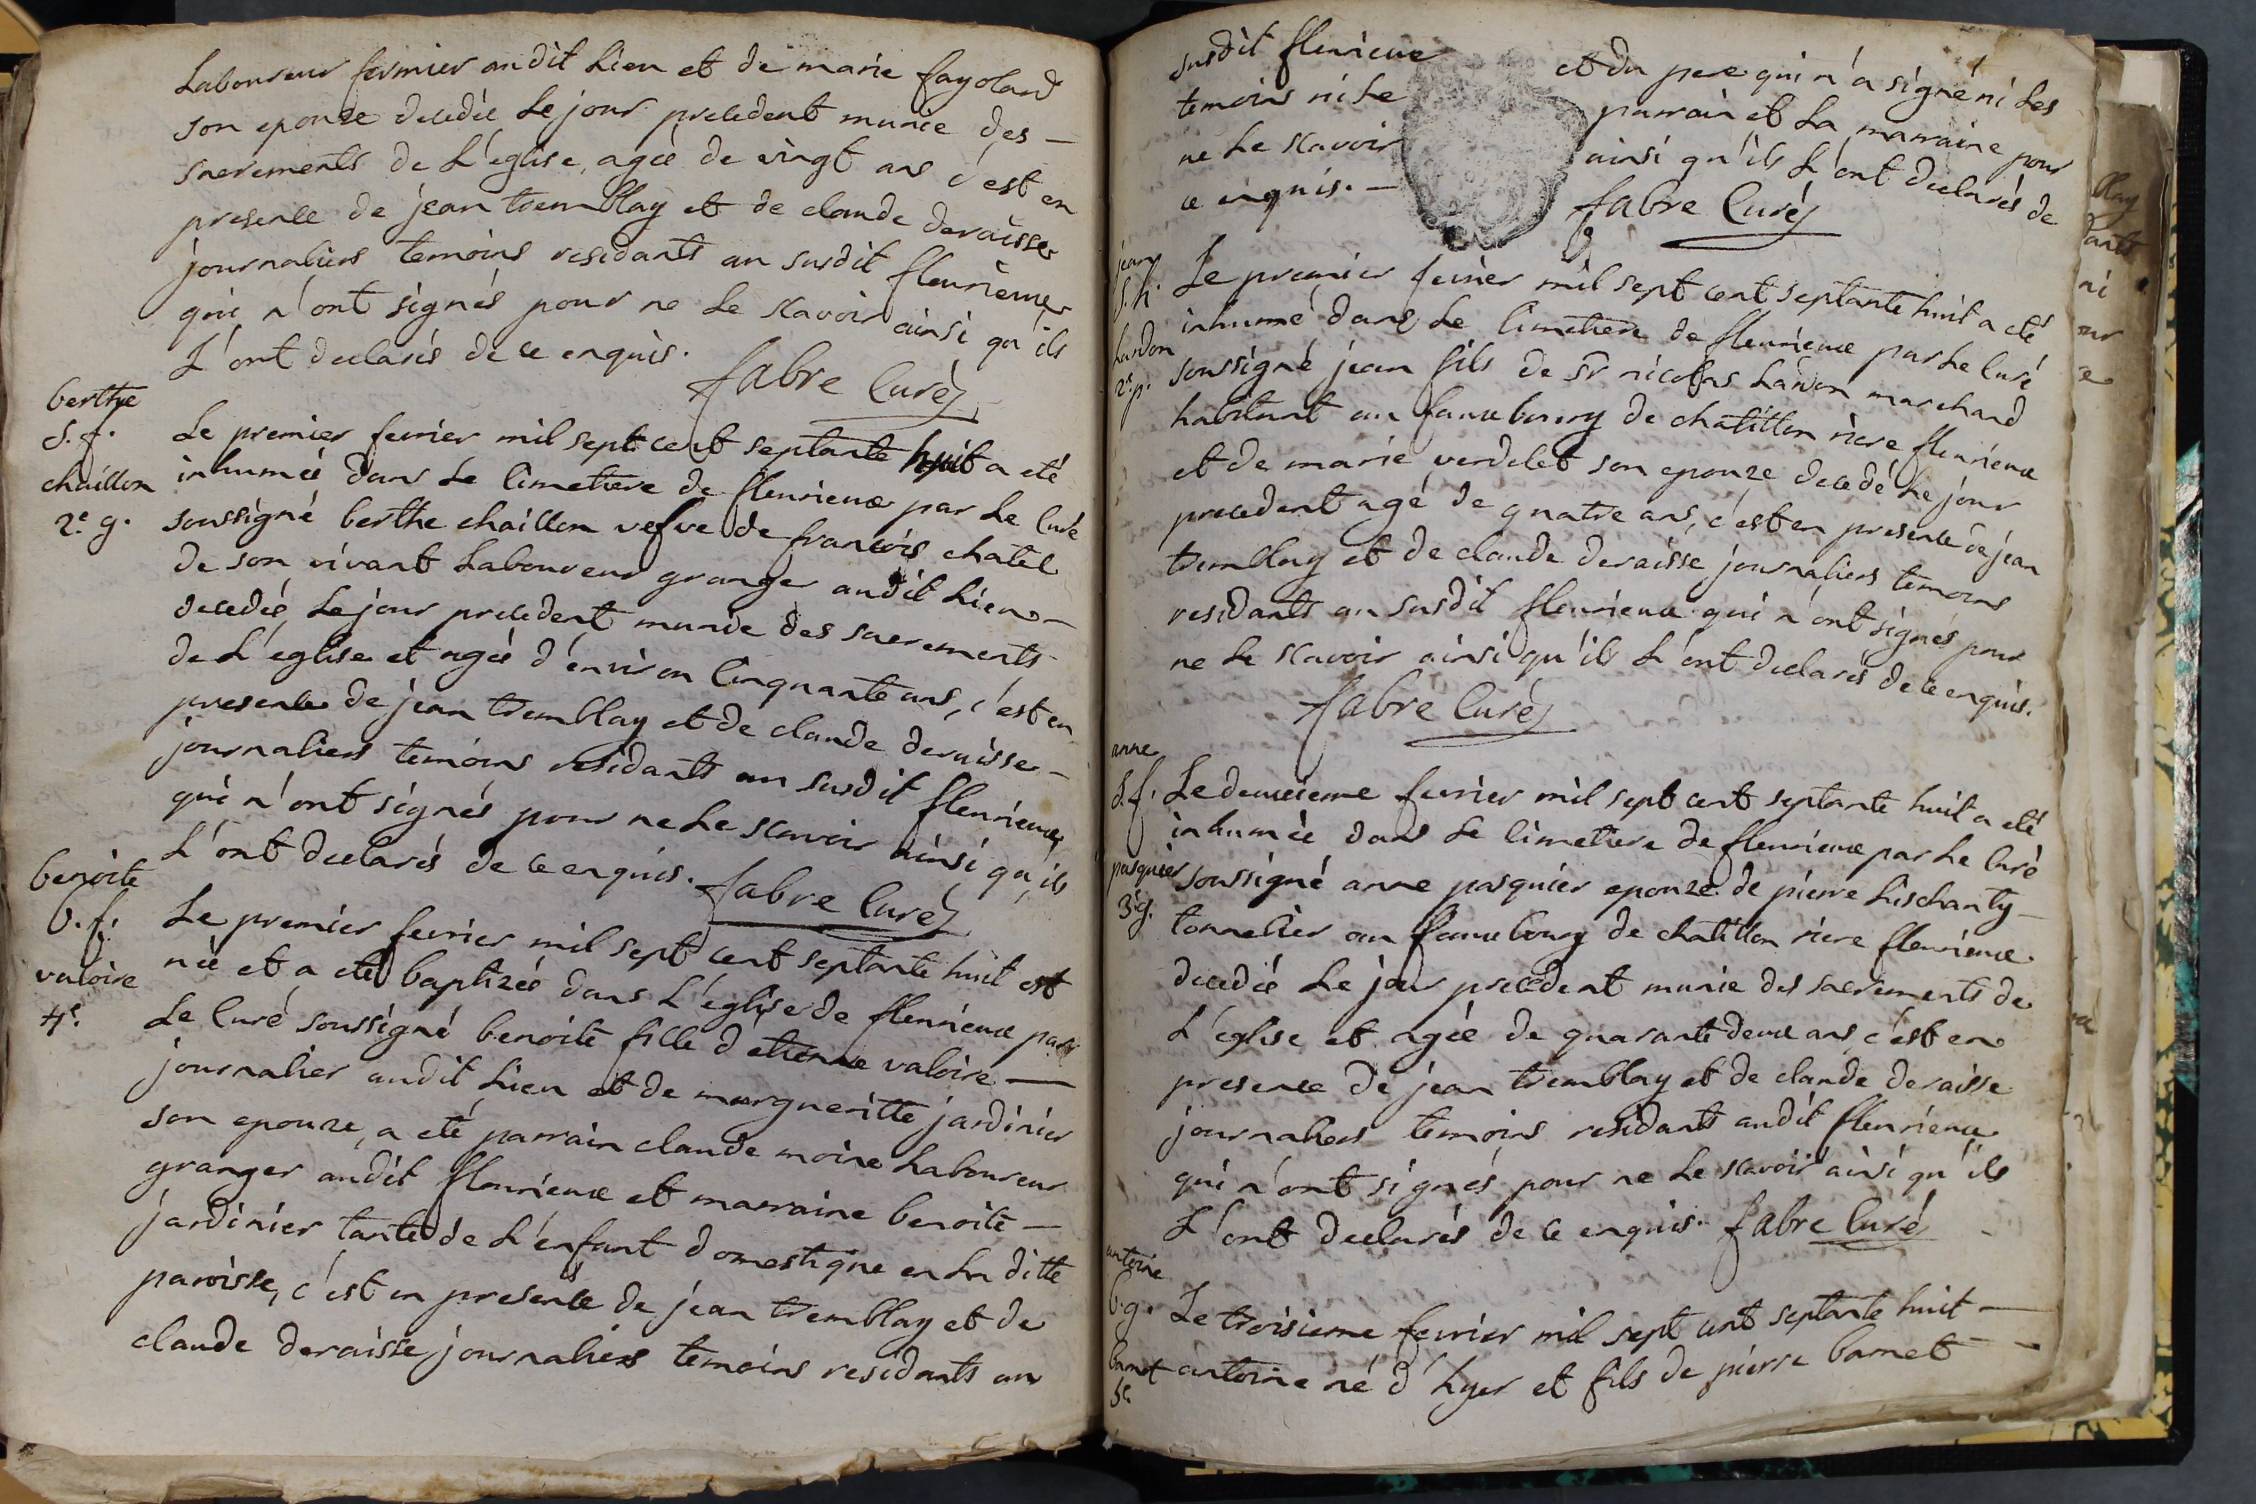 Laboureur fermier audit Lieu et de marie fayoland
son epouze decedée Le jour precedent munie des —
sacrements de L'eglise, agée de vingt ans c'est en
presence de jean tremblay et de claude deraisse
journaliers temoins residants au susdit fleurieux
qui n'ont signés pour ne Le scavoir ainsi qu'ils
L'ont declarés de ce enquis.
fabre Curé
berthe
S. f.
chaillon
2e g.
Le premier fevrier mil sept cent septante huit a eté
inhumée dans Le Cimetiere de fleurieux par Le Curé
soussigné berthe chaillon vefve de francois chatel
de son vivant Laboureur granger audit Lieu —
decedée Le jour precedent munie des sacrements
de L'eglise et agée d'environ Cinquante ans, c'est en
presence de jean tremblay et de claude deraisse —
journaliers temoins residants au susdit fleurieux
qui n'ont signés pour ne Le scavoir ainsi qu'ils
L'ont declarés de ce enquis.
fabre Curé
benoite
b. f.
valoire
4e.
Le premier fevrier mil sept cent septante huit est
née et a eté baptizée dans L'eglise de fleurieux par
Le Curé soussigné benoite fille d'etienne valoire —
journalier audit Lieu et de margueritte jardinier
son epouze, a eté parrain claude moine Laboureur
granger audit fleurieux et marraine benoite —
jardinier tante de L'enfant domestique en La ditte
paroisse, c'est en presence de jean tremblay et de
claude deraisse journaliers temoins residants au
susdit fleurieux et du pere qui n'a signé ni Les
temoins ni Le parrain et La marraine pour
ne Le scavoir ainsi qu'ils L'ont declarés de
ce enquis. —
fabre Curé
jean
Lardon
2e p.
Le premier fevrier mil sept cent septante huit a eté
inhumé dans Le Cimetiere de fleurieux par Le Curé
soussigné jean fils de Sr nicolas Lardon marchand
habitant au fauxbourg de chatillon riere fleurieux
et de marie verdelet son epouze decedé Le jour
precedent agé de quatre ans, c'est en presence de jean
tremblay et de claude deraisse journaliers temoins
residants au susdit fleurieux qui n'ont signés pour
ne Le scavoir ainsi qu'ils L'ont declarés de ce enquis.
fabre Curé
anne
S. f.
pasquier
3e g.
Le deuxieme fevrier mil sept cent septante huit a eté
inhumée dans Le Cimetiere de fleurieux par Le Curé
soussigné anne pasquier epouze de pierre Lischanty —
tonnelier au fauxbourg de chatillon riere fleurieux
decedée Le jour precedent munie des sacrements de
L'eglise et agée de quarante deux ans, c'est en
presence de jean tremblay et de claude deraisse
journaliers temoins residants audit fleurieux
qui n'ont signés pour ne Le scavoir ainsi qu'ils
L'ont declarés de ce enquis. fabre Curé
antoine
b. g.
barnet
5e.
Le troisieme fevrier mil sept cent septante huit —
antoine né d'hyer et fils de pierre barnet